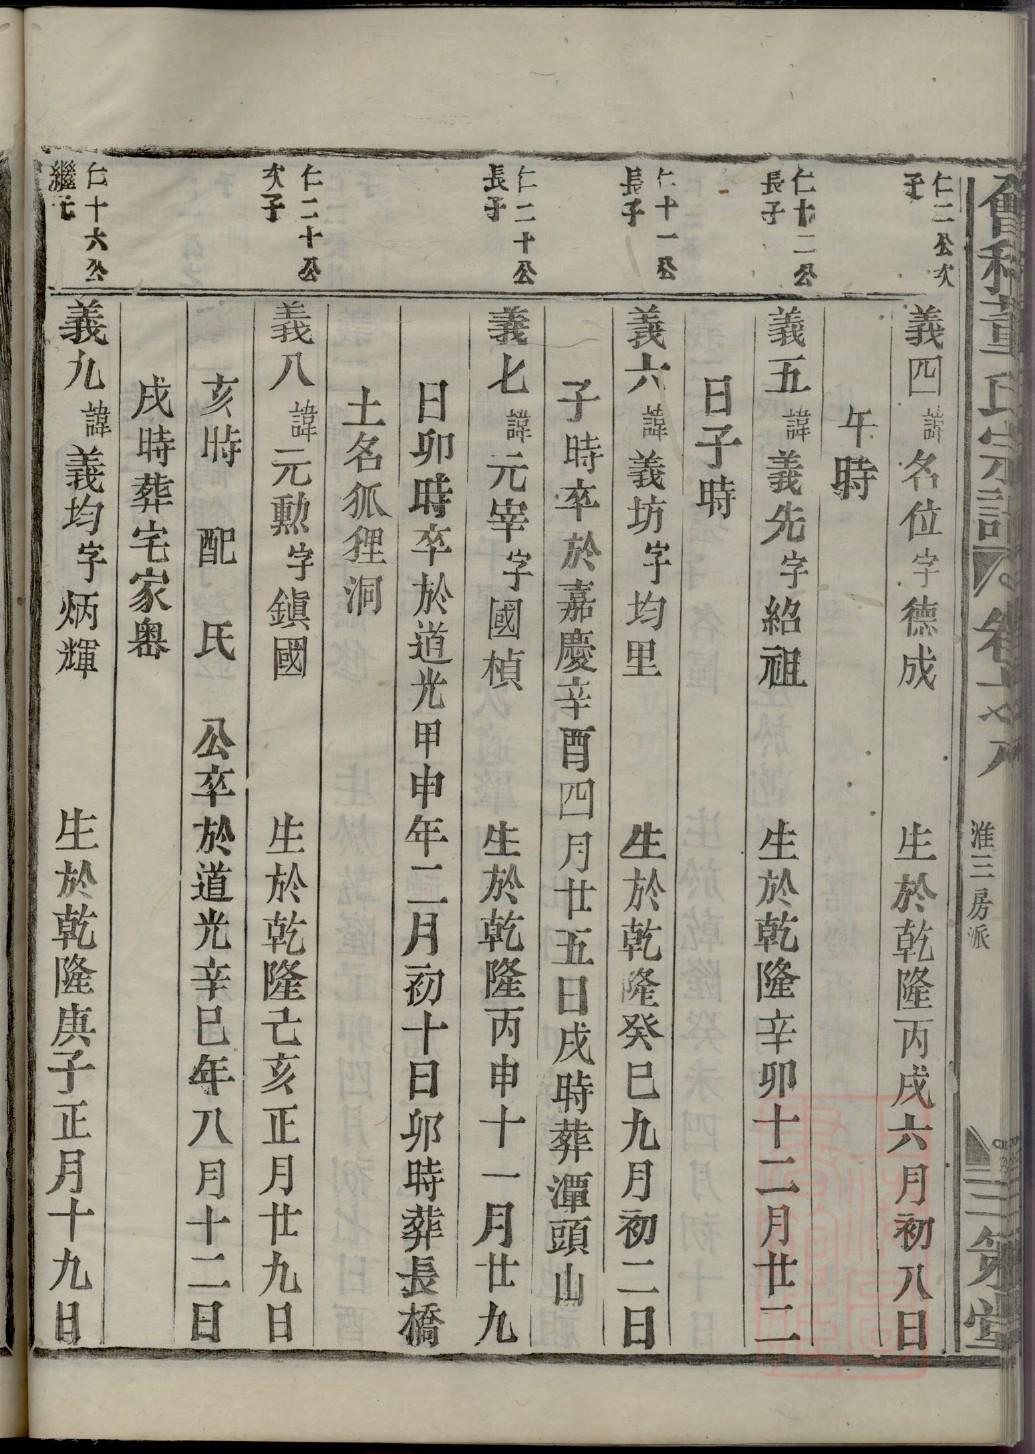 會稽董氏宗譜
淮三房派
仁二公次
子
義四 諱名位字德成 生於乾隆丙戌六月初八日
午時
仁十二公
長子
義五 諱義先字紹祖 生於乾隆辛卯十二月廿二
日子時
仁十一公
長子
義六 諱義坊字均里 生於乾隆癸巳九月初二日
子時卒於嘉慶辛酉四月廿五日戌時葬潭頭山
仁二十公
長子
義七 諱元宰字國楨 生於乾隆丙申十一月廿九
日卯時卒於道光甲申年二月初十日卯時葬長橋
土名狐狸洞
仁二十公
次子
義八 諱元勲字鎭國 生於乾隆己亥正月廿九日
亥時 配 氏 公卒於道光辛巳年八月十二日
戌時葬宅家畧
仁十六公
繼子
義九 諱義均字炳輝 生於乾隆庚子正月十九日